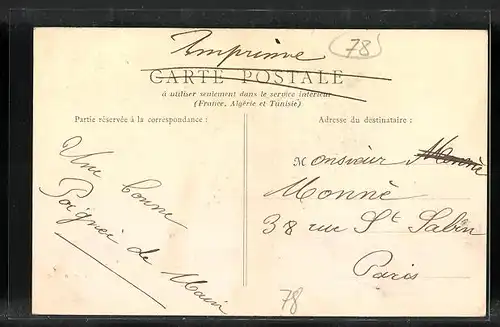 Imprimé
78
CARTE POSTALE
à utiliser seulement dans le service intérieur
(France, Algérie et Tunisie)
Partie réservée à la correspondance :
Une bonne
Poignée de Main
Adresse du destinataire :
Monsieur Monnè
Monnè
38 rue St Sabin
Paris
78